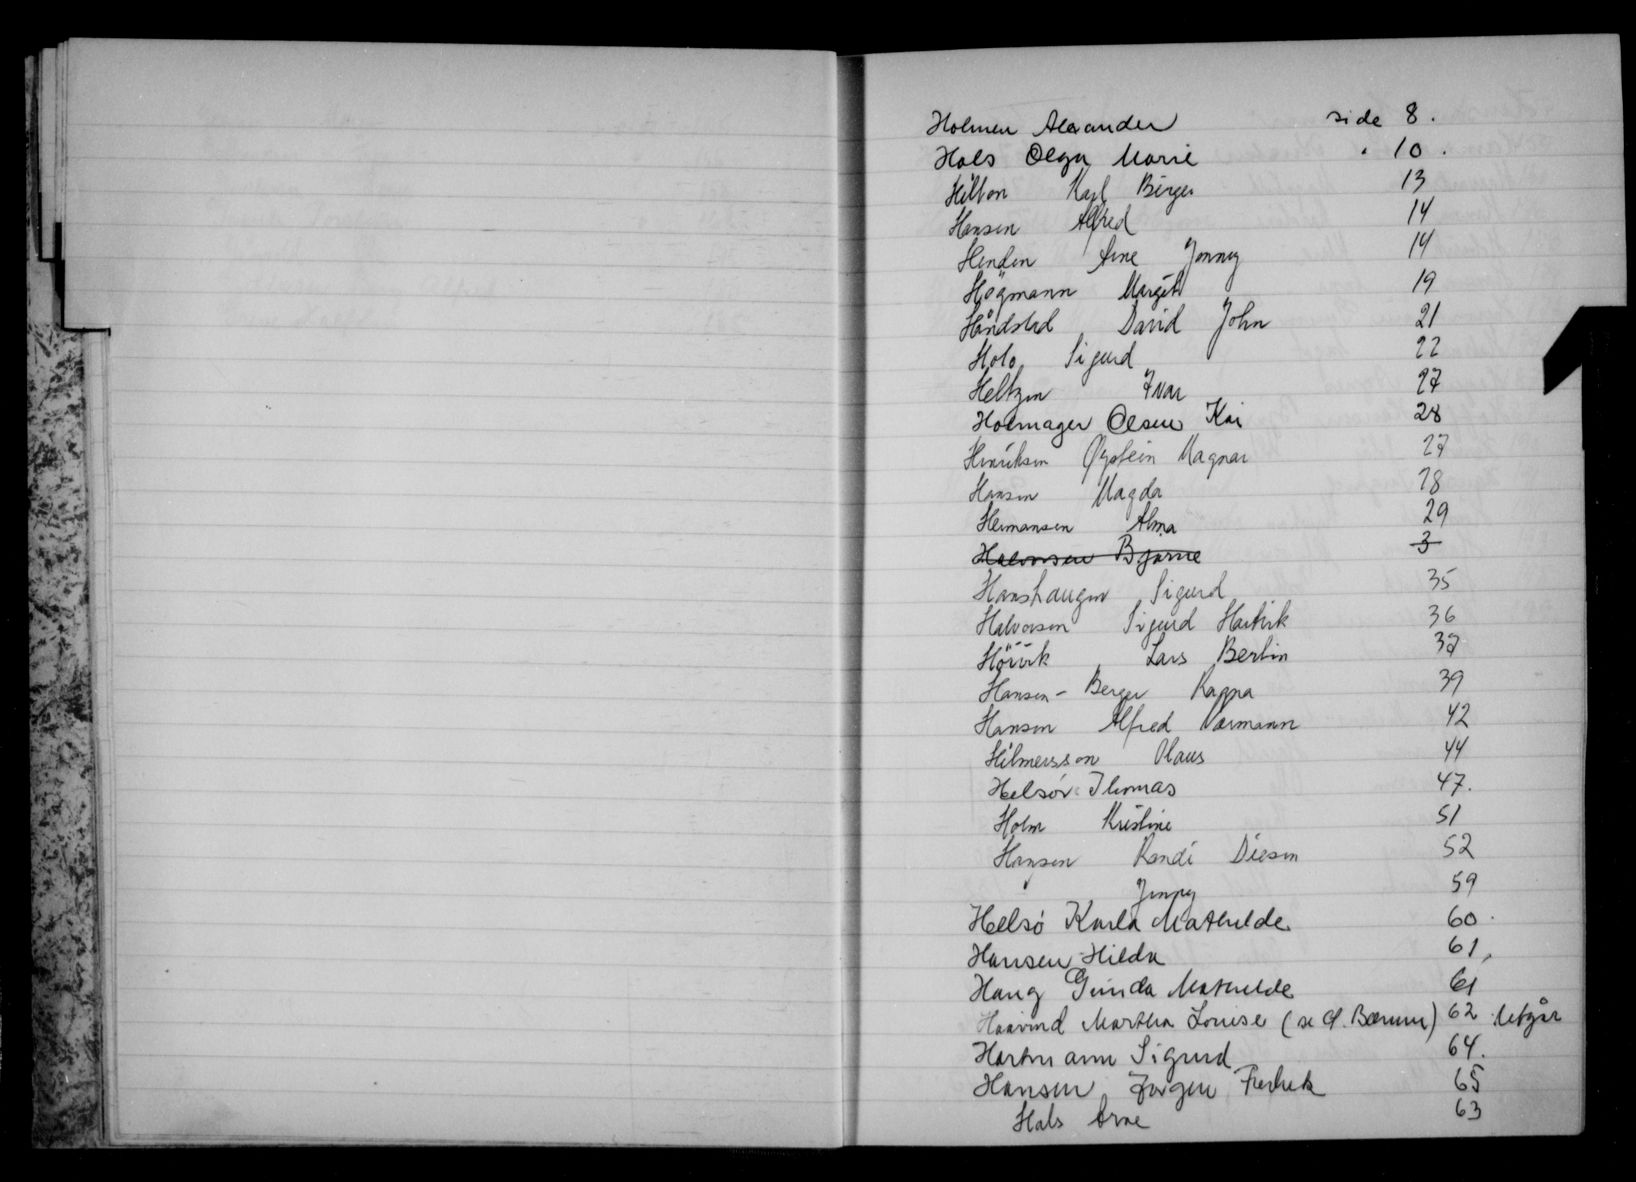 Holmen Alexander side 8.
Hals Olga Marie " 10.
Hilton Karl Birger 13
Hansen Alfred 14
Henden Arne Jonny 14
Högmann Margit 19
Håndstad David John 21
Holo Sigurd 22
Heltzen Ivar 27
Holmager Olsen Kai 28
Henriksen Øystein Magnar 27
Hansen Magda 28
Hermansen Alma 29
Halvorsen Bjarne 3
Hanshaugen Sigurd 35
Halvorsen Sigurd 36
Hörvik Lars Bertin 37
Hansen-Berger Ragna 39
Hansen Alfred Normann 42
Hilmersson Olaus 44
Helsör Thomas 47.
Holm Kristine 51
Hansen Randi Diesen 52
Jenny 59
Helsö Karla Mathilde 60.
Hansen Hilda 61,
Haug Gunda Mathilde 61
Haavind Martha Louise (se A. Bærum) 62 Utgår
Hartmann Sigurd 64.
Hansen Jørgen Fredrik 65
Hals Arne 63